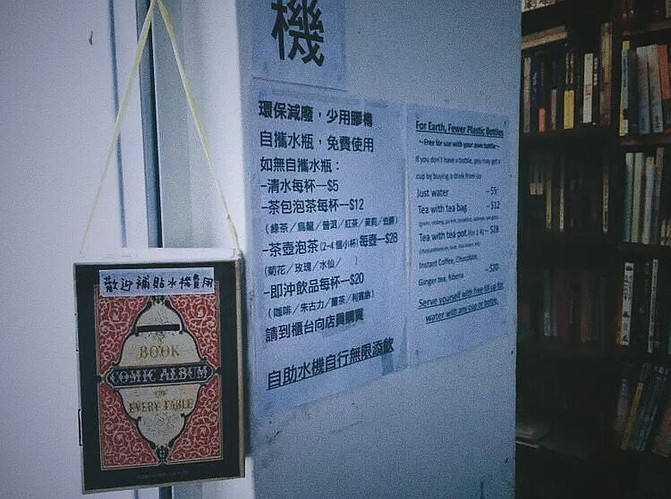 機
環保減廢，少用膠樽
自攜水瓶，免費使用
如無自攜水瓶：
-清水每杯---$5
-茶包泡茶每杯---$12
(綠茶／烏龍／普洱／紅茶／茉莉／伯爵)
-茶壺泡茶(2-4個小杯)每壺---$28
(菊花／玫瑰／水仙／ )
-即沖飲品每杯---$20
(咖啡／朱古力／薑茶／利賓納)
請到櫃台向店員購買
自助水機自行無限添飲
For Earth, Fewer Plastic Bottles
~Free for use with your own bottle~
If you don't have a bottle, you may get a
cup by buying a drink from us
Just water -$5-
Tea with tea bag -$12
Tea with tea pot (For 2-4) -$28
Instant Coffee, Chocolate,
Ginger tea, Ribena -$20
Serve yourself with free fill up for
water with any cup or bottle.
歡迎補貼水機費用
BOOK
COMIC ALBUM
EVERY TABLE